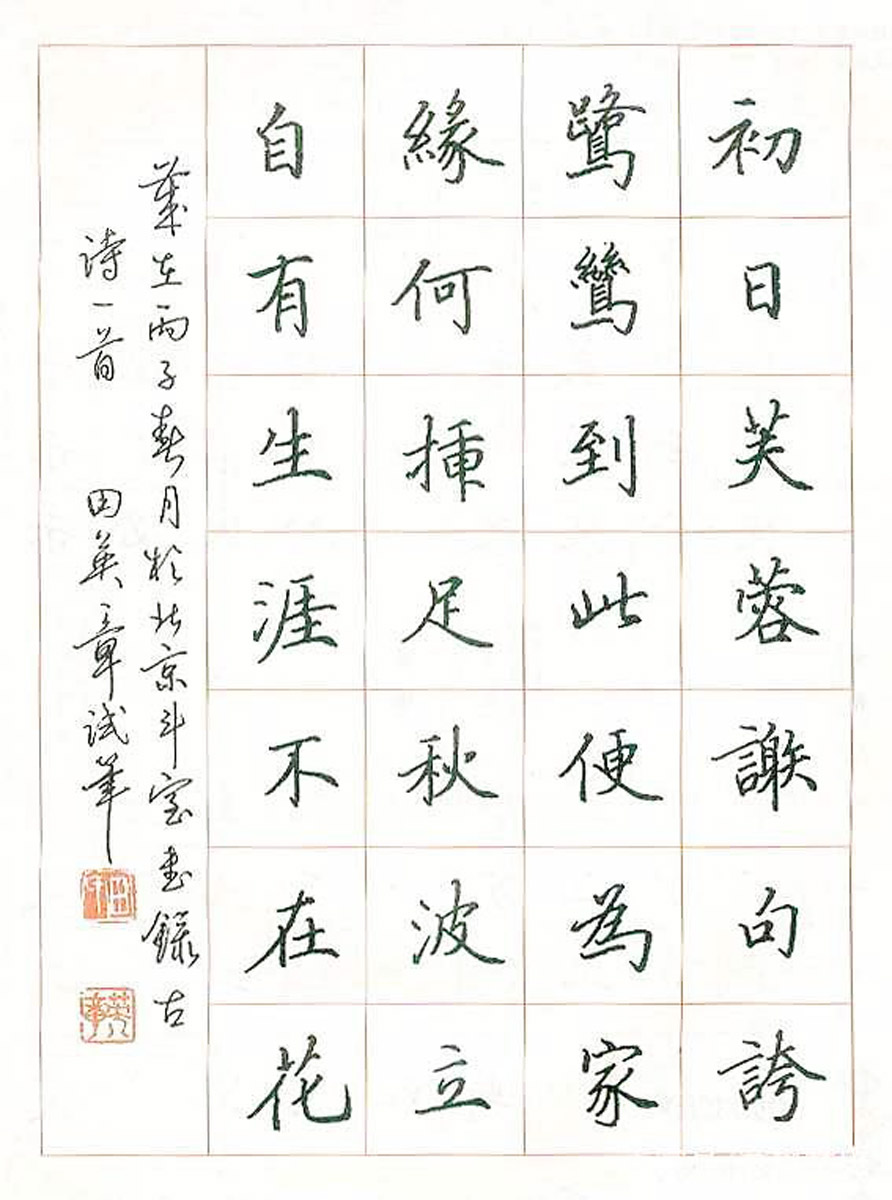 初日芙蓉謝句誇
鷺鸞到此便為家
緣何挿足秋波立
自有生涯不在花
歲在丙子春月於北京斗室書録古
诗一首 田英章试筆
田
英章